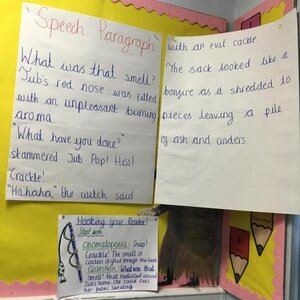 "Speech Paragraph"
"What was that smell?"
Jub's red nose was filled
with an unpleasant burning
aroma.
"What have you done?"
stammered Jub Pop! Hiss!
Crackle!
"Hahaha" the witch said
with an evil cackle.
The sack looked like a
bonfire as it shredded to
pieces leaving a pile
of ash and cinders.
Hooking your Reader!
Start with
Onomatopoeia: Snap!
Crackle! The smell of
cinders drifted through the
Question: What was that
smell? Heat radiated around
Jub's home, the cause
her palms sweating.